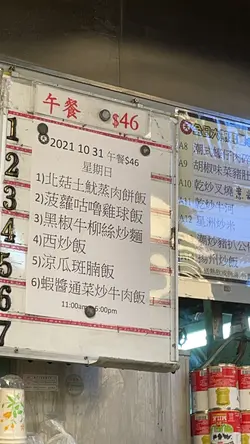 午餐 $46
2021 10 31 午餐$46
星期日
1)北菇土魷蒸肉餅飯
2)菠蘿咕嚕雞球飯
3)黑椒牛柳絲炒麵
4)西炒飯
5)涼瓜斑腩飯
6)蝦醬通菜炒牛肉飯
1
2
3
4
5
6
7
A8
A9 胡椒味菜豬肚
A10 乾炒叉燒
A11 乾炒牛河
A12 星洲炒米
揚州炒飯